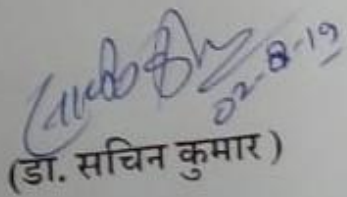 02-8-19
(डा. सचिन कुमार)